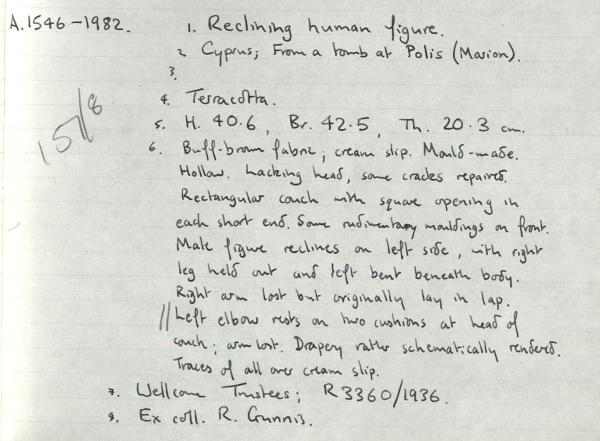 A.1546-1982. 1. Reclining human figure.
2 Cyprus; From a tomb at Polis (Marion).
3.
4. Terracotta.
15/8
5. H. 40.6, Br. 42.5, Th. 20.3 cm.
6. Buff-brown fabric; cream slip. Mould-made.
Hollow. Lacking head, some cracks repaired.
Rectangular couch with square opening in
each short end. Some rudimentary mouldings on front.
Male figure reclines on left side, with right
leg held out and left bent beneath body.
Right arm lost but originally lay in lap.
Left elbow rests on two cushions at head of
couch; arm lost. Drapery rather schematically rendered.
Traces of all over cream slip.
7. Wellcome Trustees; R3360/1936.
8. Ex coll. R. Gunnis.